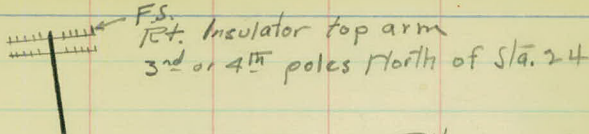 F.S.
Rt. Insulator top arm
3rd or 4th poles North of Sta. 24